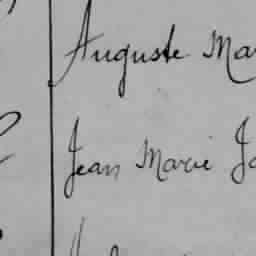 Auguste Mar
Jean Marie Jo